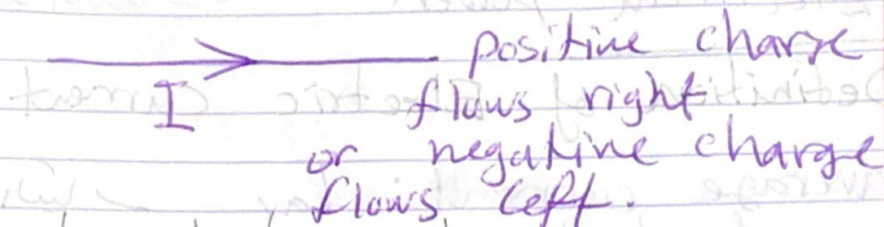 positive charge
I flows right
or negative charge
flows left.